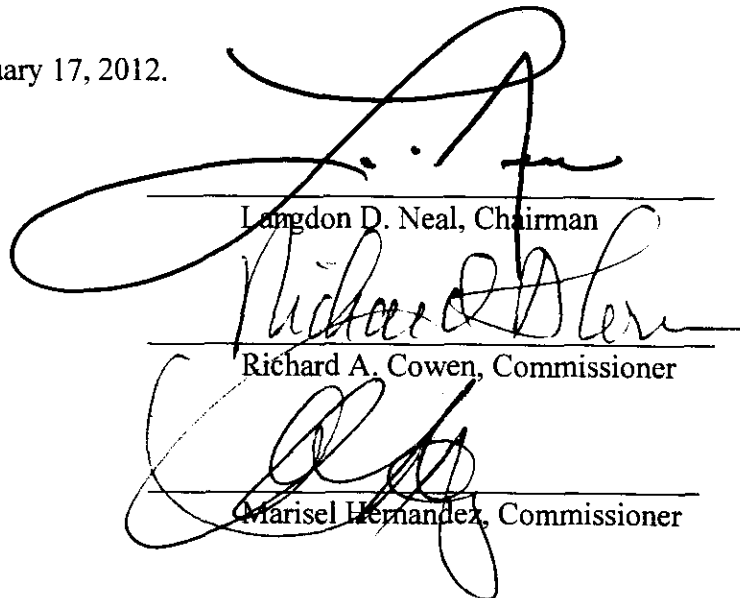 uary 17, 2012.
Langdon D. Neal, Chairman
Richard A. Cowen, Commissioner
Marisel Hernandez, Commissioner